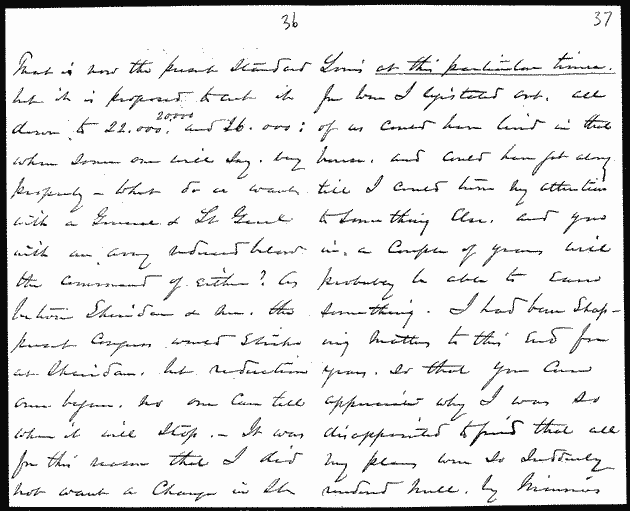 36
That is now the present Standard
but it is proposed to cut it
down to 22.000. 20000 and 16.000:
when some one will say. very
properly – What do we want
with a General & Lt Genl
with an army reduced below
the command of either? As
between Sheridan & me. the
present Congress would strike
at Sheridan. but reduction
once begun. no one can tell
when it will stop. – It was
for this reason that I did
not want a Change in St
37
Louis at this particular time.
for when I out. all
of us could have lived in that
house. and could have got along
till I could turn my attention
to something else. and you
in a couple of years will
probably be able to earn
something. I had been shap-
ing matters to this end for
years. So that you can
appreciate why I was so
disappointed to find that all
my plans were so suddenly
rendered null. by Minnies